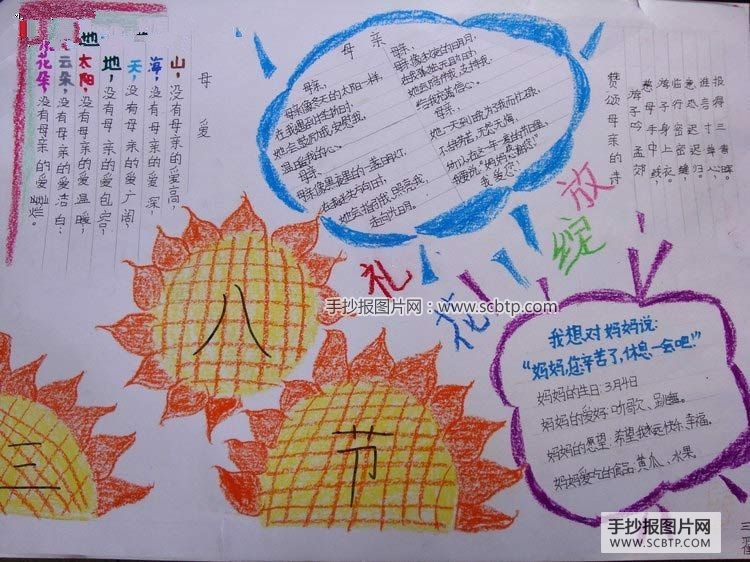 母爱
山，没有母亲的爱高，
海，没有母亲的爱深，
天，没有母亲的爱广阔，
地，没有母亲的爱包容；
太阳，没有母亲的爱温暖，
云朵，没有母亲的爱洁白；
花朵，没有母亲的爱灿烂。
母亲
母亲，
母亲像冬天的太阳一样，
在我遇到挫折时，
她会鼓励我安慰我，
温暖我的心。
母亲，
母亲像黑夜里的一盏明灯，
她会指引我照亮我，
走向光明。
母亲，
给我充满信心。
母亲，
她一天到晚为了我而忙碌，
不怕辛苦，无怨无悔，
我要说：“妈妈您辛苦了！
我爱您”
赞颂母亲的诗
游子吟 孟郊
慈母手中线，
游子身上衣。
临行密密缝，
意恐迟迟归。
谁言寸草心，
报得三春晖。
礼花绽放
三
八
节
我想对妈妈说：
“妈妈，您辛苦了，休息一会吧！”
妈妈的生日：3月4日
妈妈的爱好：听歌、跳舞。
妈妈的愿望：希望我永远快乐幸福。
妈妈爱吃的食品：黄瓜、水果
手抄报图片网：www.scbtp.com
手抄报图片网
WWW.SCBTP.COM